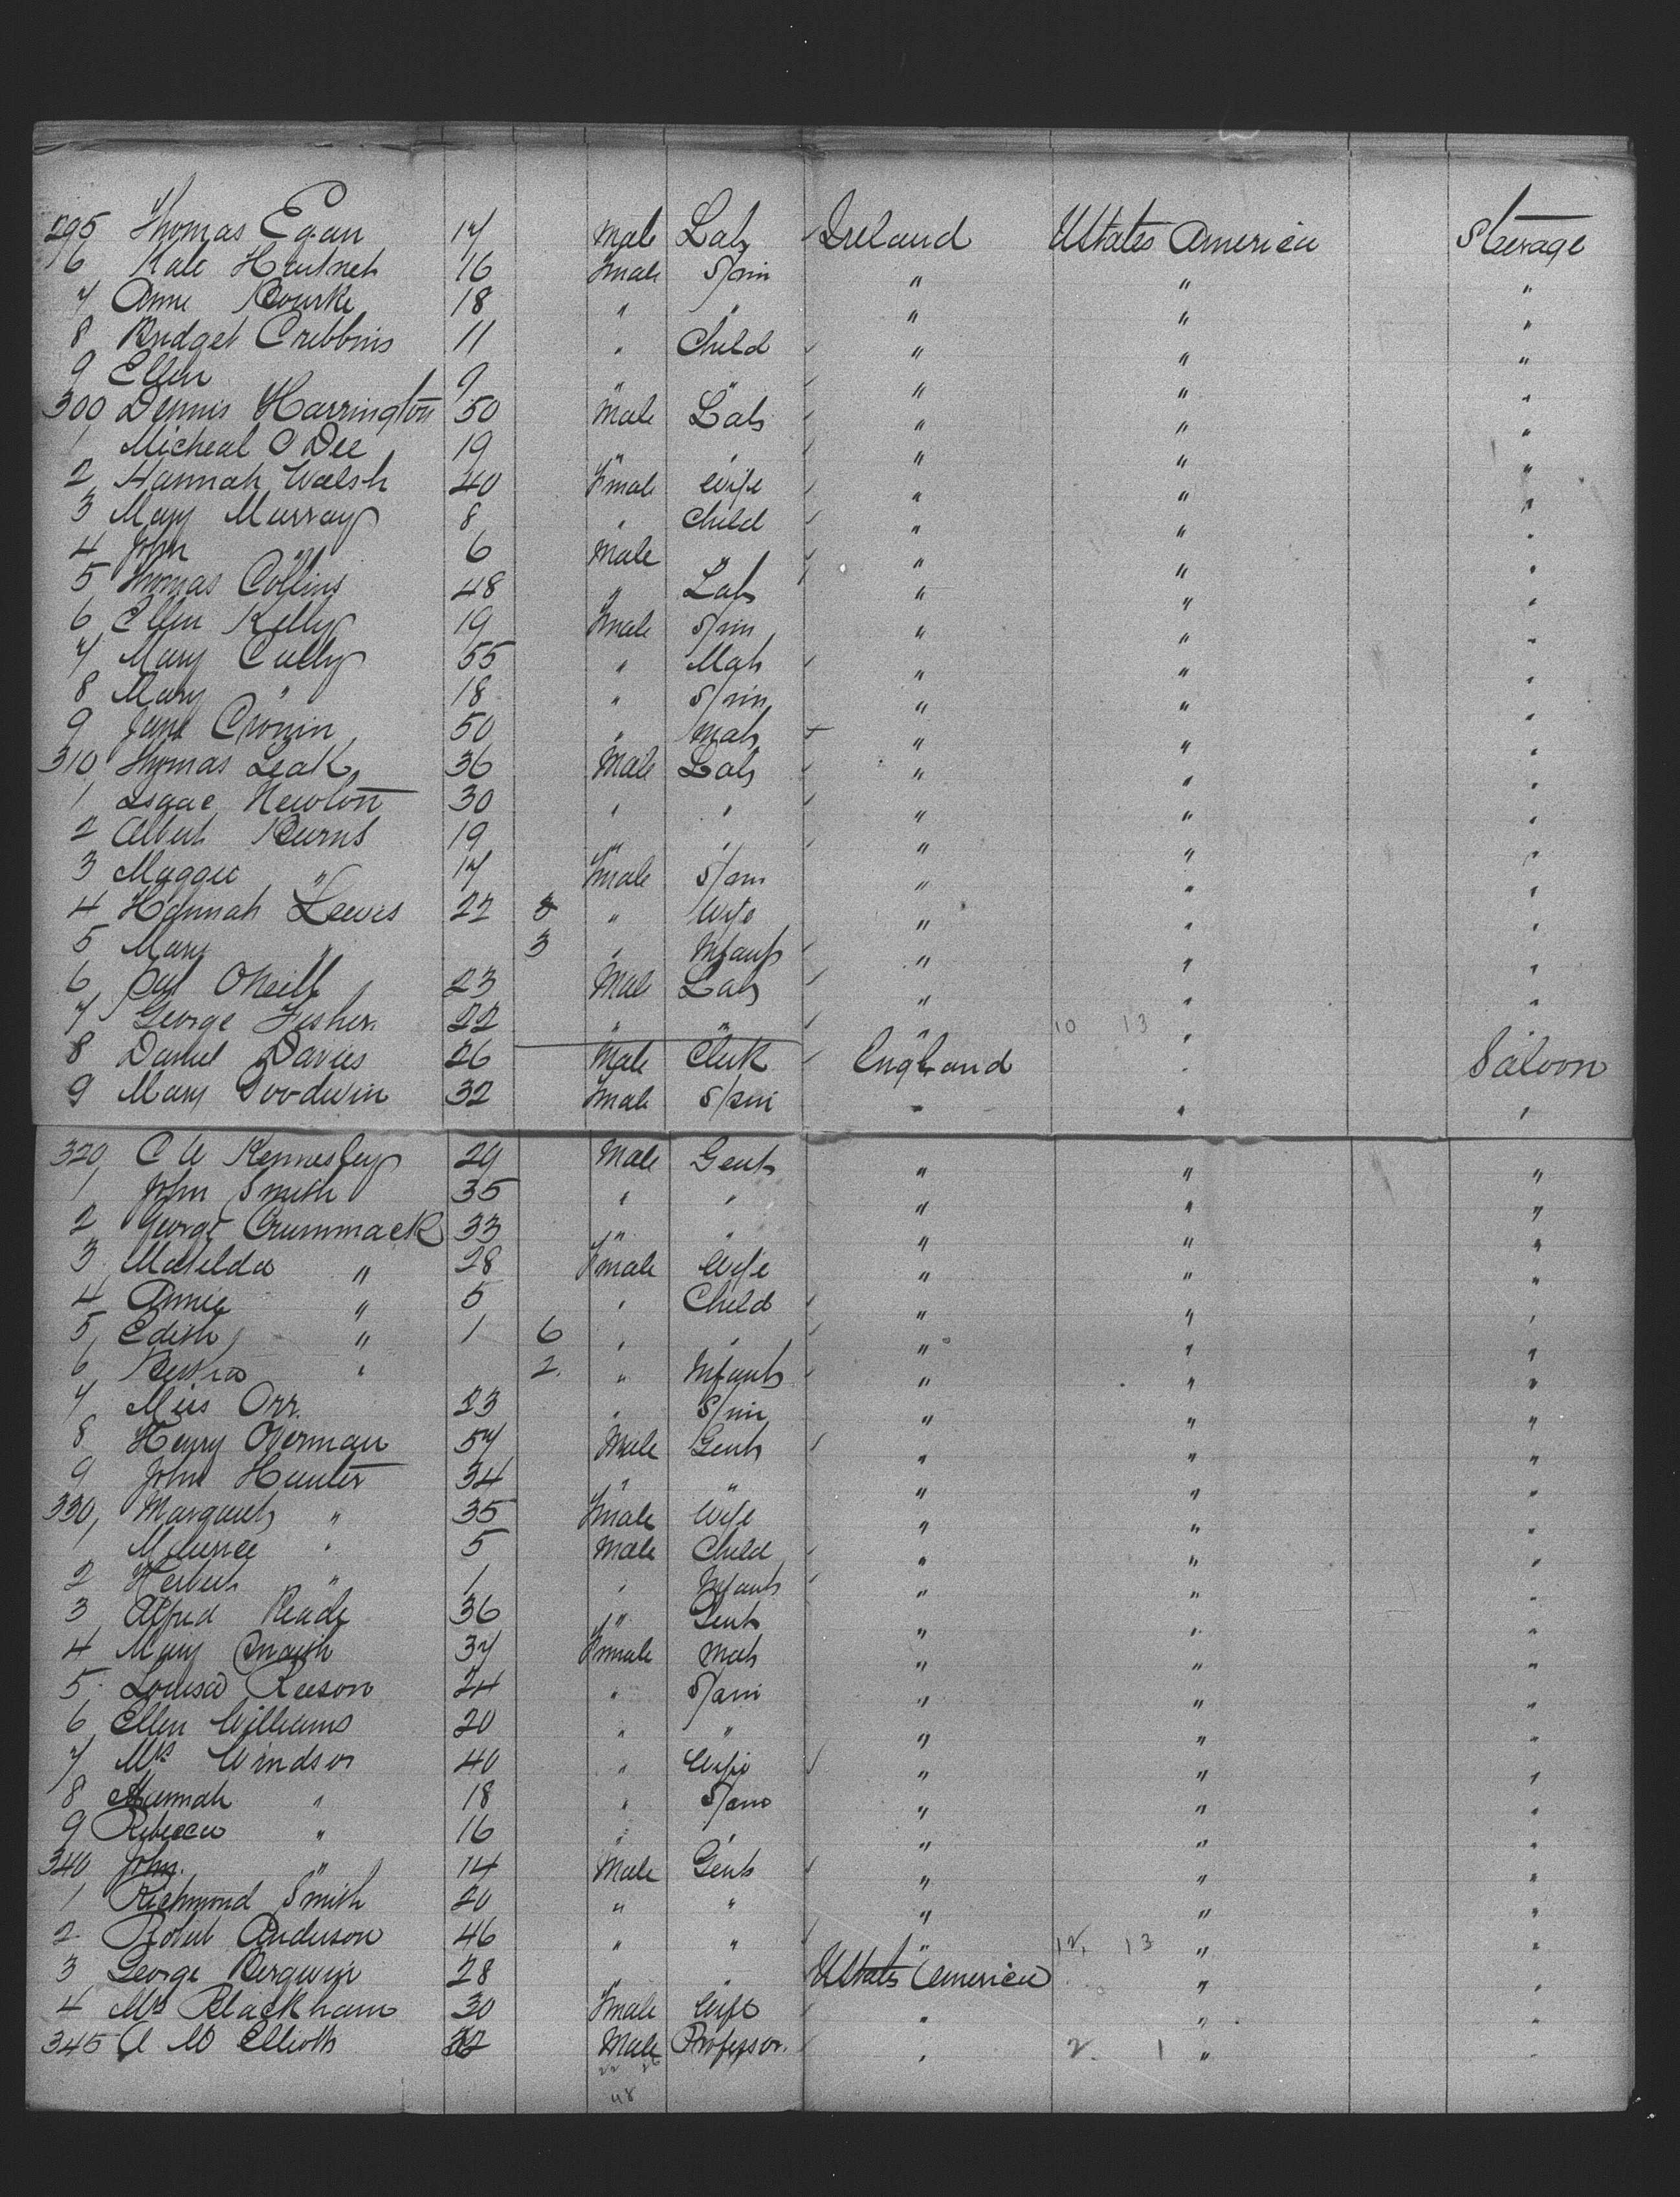 295 Thomas Egan 17 Male Lab Ireland UStates America Steerage
6 Kate Hartnet 16 Fmale Spin " " "
7 Anne Rourke 18 " " " " "
8 Bridget Cribbins 11 " Child " " "
9 Ellen " 9 " " " " "
300 Dennis Harrington 50 Male Lab " " "
1 Micheal O Dee 19 " " " " "
2 Hannah Walsh 40 Fmale Wife " " "
3 Mary Murray 8 " Child " " "
4 John " 6 Male " " " "
5 Thomas Collins 48 " Lab " " "
6 Ellen Kelly 19 Fmale Spin " " "
7 Mary Cully 55 " Mat " " "
8 Mary " 18 " Spin " " "
9 Jane Cronin 50 " Mat " " "
310 Thomas Leak 36 Male Lab " " "
1 Isaac Newton 30 " " " " "
2 Albert Burns 19 " " " " "
3 Maggie " 17 Fmale Spin " " "
4 Hannah Lewis 22 " Wife " " "
5 Mary " 3 " Infant " " "
6 Pat ONeill 23 Male Lab " " "
7 George Fisher 22 " " " 10 13 " "
8 Daniel Davies 26 Male Clerk England " Saloon
9 Mary Goodwin 32 Fmale Spin " " "
320 C W 29 Male Gent " " "
1 John Smith 35 " " " " "
2 George Crummack 33 " " " " "
3 Matilda " 28 Fmale Wife " " "
4 Annie " 5 " Child " " "
5 Edith " 1 6 " " " " "
6 " 2 " Infant " " "
7 Miss Orr 23 " Spin " " "
8 Henry Overman 57 Male Gent " " "
9 John Hunter 34 " " " " "
330 Margaret " 35 Fmale Wife " " "
1 Maurice " 5 Male Child " " "
2 Herbert " 1 " Infant " " "
3 Alfred Reade 36 " Gent " " "
4 Mary 37 Fmale Mat " " "
5 Louisa Reeson 24 " Spin " " "
6 Ellen Williams 20 " " " " "
7 Mrs Windsor 40 " Wife " " "
8 Hannah " 18 " Spin " " "
9 Rebecca " 16 " " " " "
340 John " 14 Male Gent " " "
1 Richmond Smith 20 " " " " "
2 Robert Anderson 46 " " " 12 13 " "
3 George Bergwin 28 " " UStates America " "
4 Mrs Blackham 30 Fmale Wife " " "
345 A M Elliott 32 Male Professor " 2 1 " "
22 26
48